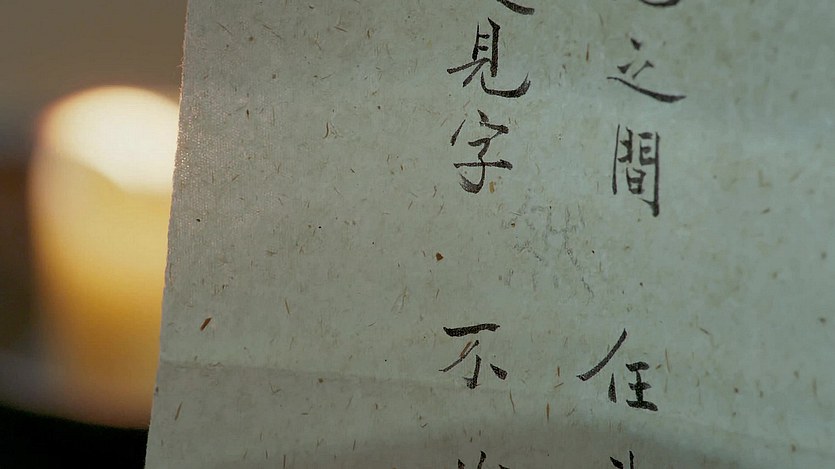 之間 任
見字 不